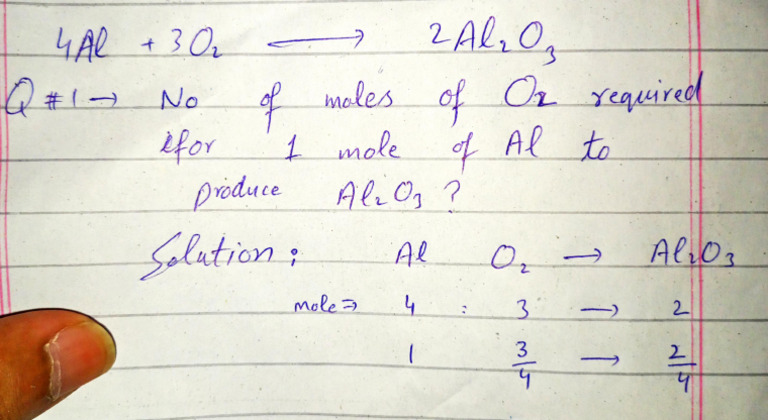 4Al + 3O₂ ⟶ 2Al₂O₃
Q #1 → No of moles of O₂ required
for 1 mole of Al to
produce Al₂O₃ ?
Solution : Al O₂ → Al₂O₃
mole ⇒ 4 : 3 → 2
1 3/4 → 2/4